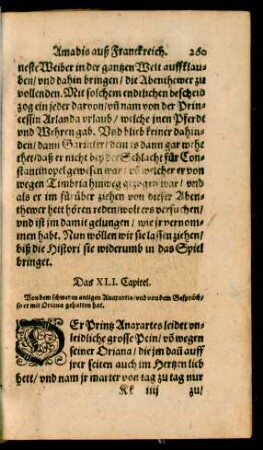 Amadis auß Franckreich. 260
neste Weiber in der gantzen Welt auffklau-
ben/ vnd dahin bringen/ die Abenthewer zu
vollenden. Mit solchem endtlichen bescheid
zog ein jeder darvon/ vñ nam von der Prin-
cessin Arlanda vrlaub/ welche jnen Pferdt
vnd Wehren gab. Vnd blieb keiner dahin-
den/ dann Garinter/ dem es dann gar wehe
thet/ daß er nicht bey der Schlacht für Con-
stantinopel gewesen war/ võ welcher er von
wegen Timbria hinweg gezogen war/ vnd
als er im fürüber ziehen von dieser Aben-
thewer hett hören reden/ wolt ers versuchen/
vnd ist jm damit gelungen/ wie jr vernom-
men habt. Nun wöllen wir sie lassen ziehen/
biß die Histori sie widerumb in das Spiel
bringet.
Das XLI. Capitel.
Von dem schweren anligen Anaxartis/ vnd von dem Gespräch/
so er mit Oriana gehalten hat.
DEr Printz Anaxartes leidet vn-
leidliche grosse Pein/ võ wegen
seiner Oriana/ die jm dañ auff
jrer seiten auch im Hertzen lieb
hett/ vnd nam jr marter von tag zu tag nur
Kk iiij zu/